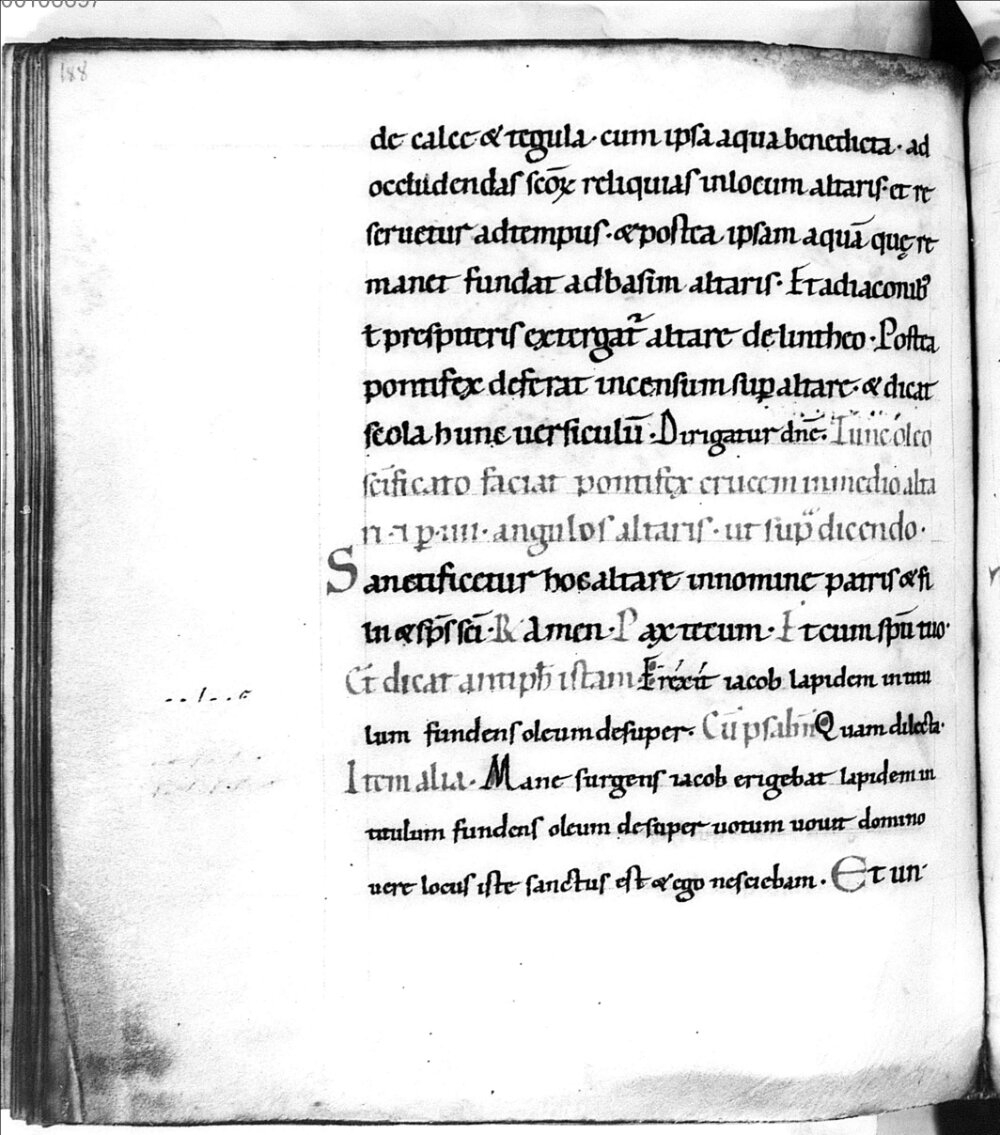 188
de calce & tegula · cum ipsa aqua benedicta · ad
occludendas scōꝝ reliquias inlocum altaris · et re
seruetur adtempus · & postea ipsam aquā quę re
manet fundat adbasim altaris · Et adiaconibꝰ
ł prespiteris extergat᷑ altare delintheo · Postea
pontifex deferat incensum suꝑ altare · & dicat
scola hunc uersiculū · Dirigatur dnē · Tunc oleo
scīficato faciat pontifex crucem inmedio alta
ri · ⁊ ꝑ · iiii · angulos altaris · ut sup̄ dicendo ·
Sanctificetur hoc altare innomine patris & fi
lii & sp̄s scī · R Amen · Pax tecum · Et cum spū tuo ·
Et dicat antiph̄ istam · Erexit iacob lapidem intitu
lum fundens oleum desuper · Cū psalm̄ Quam dilecta ·
Item alia · Mane surgens iacob erigebat lapidem in
titulum fundens oleum desuper uotum uouit domino
uere locus iste sanctus est & ego nesciebam · Et un ·